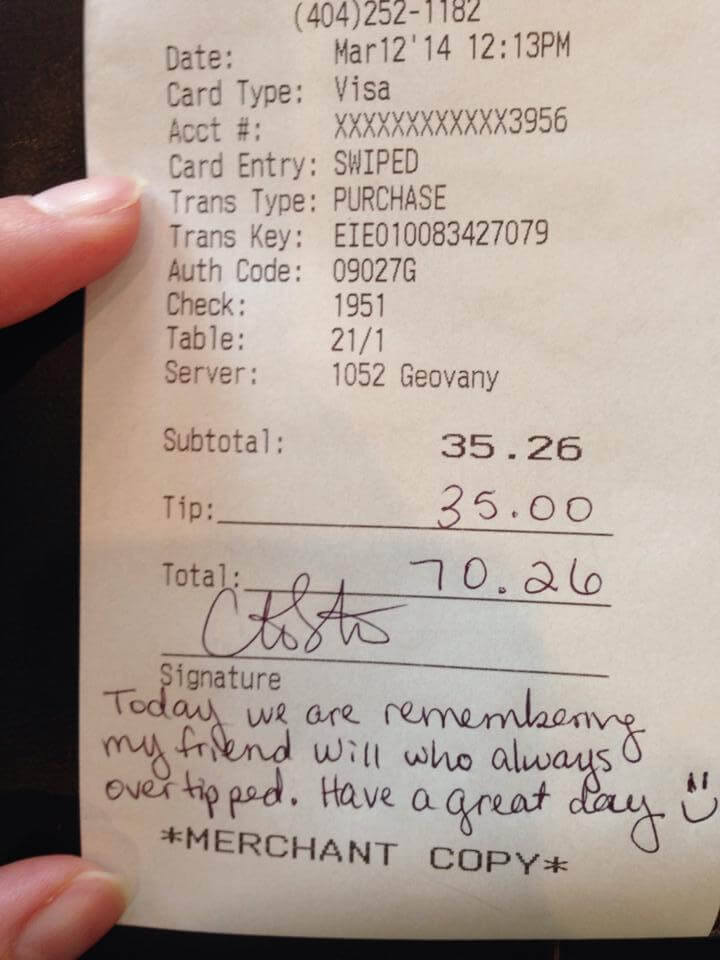 (404)252-1182
Date: Mar12'14 12:13PM
Card Type: Visa
Acct #: XXXXXXXXXXXX3956
Card Entry: SWIPED
Trans Type: PURCHASE
Trans Key: EIE010083427079
Auth Code: 09027G
Check: 1951
Table: 21/1
Server: 1052 Geovany
Subtotal: 35.26
Tip: 35.00
Total: 70.26
Signature
Today we are remembering
my friend Will who always
overtipped. Have a great day :)
*MERCHANT COPY*